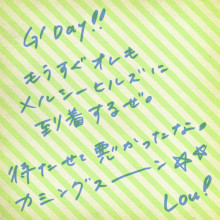 G'Day!!
もうすぐオレも
メルシーヒルズに
到着するぜ。
待たせて悪かったな。
カミングスーン☆☆
Lou!